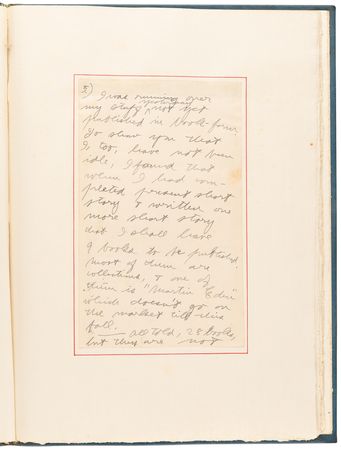 5) I was running over
my stuff yesterday not yet
published in book-form.
To show you that
I, too, have not been
idle, I found that
when I had com-
pleted present short
story & written one
more short story
that I shall have
9 books to be published
most of them are
collections, & one of
them is "Martin Eden"
which doesn't go on
the market till this
fall.
— all told, 28 books,
but they are not